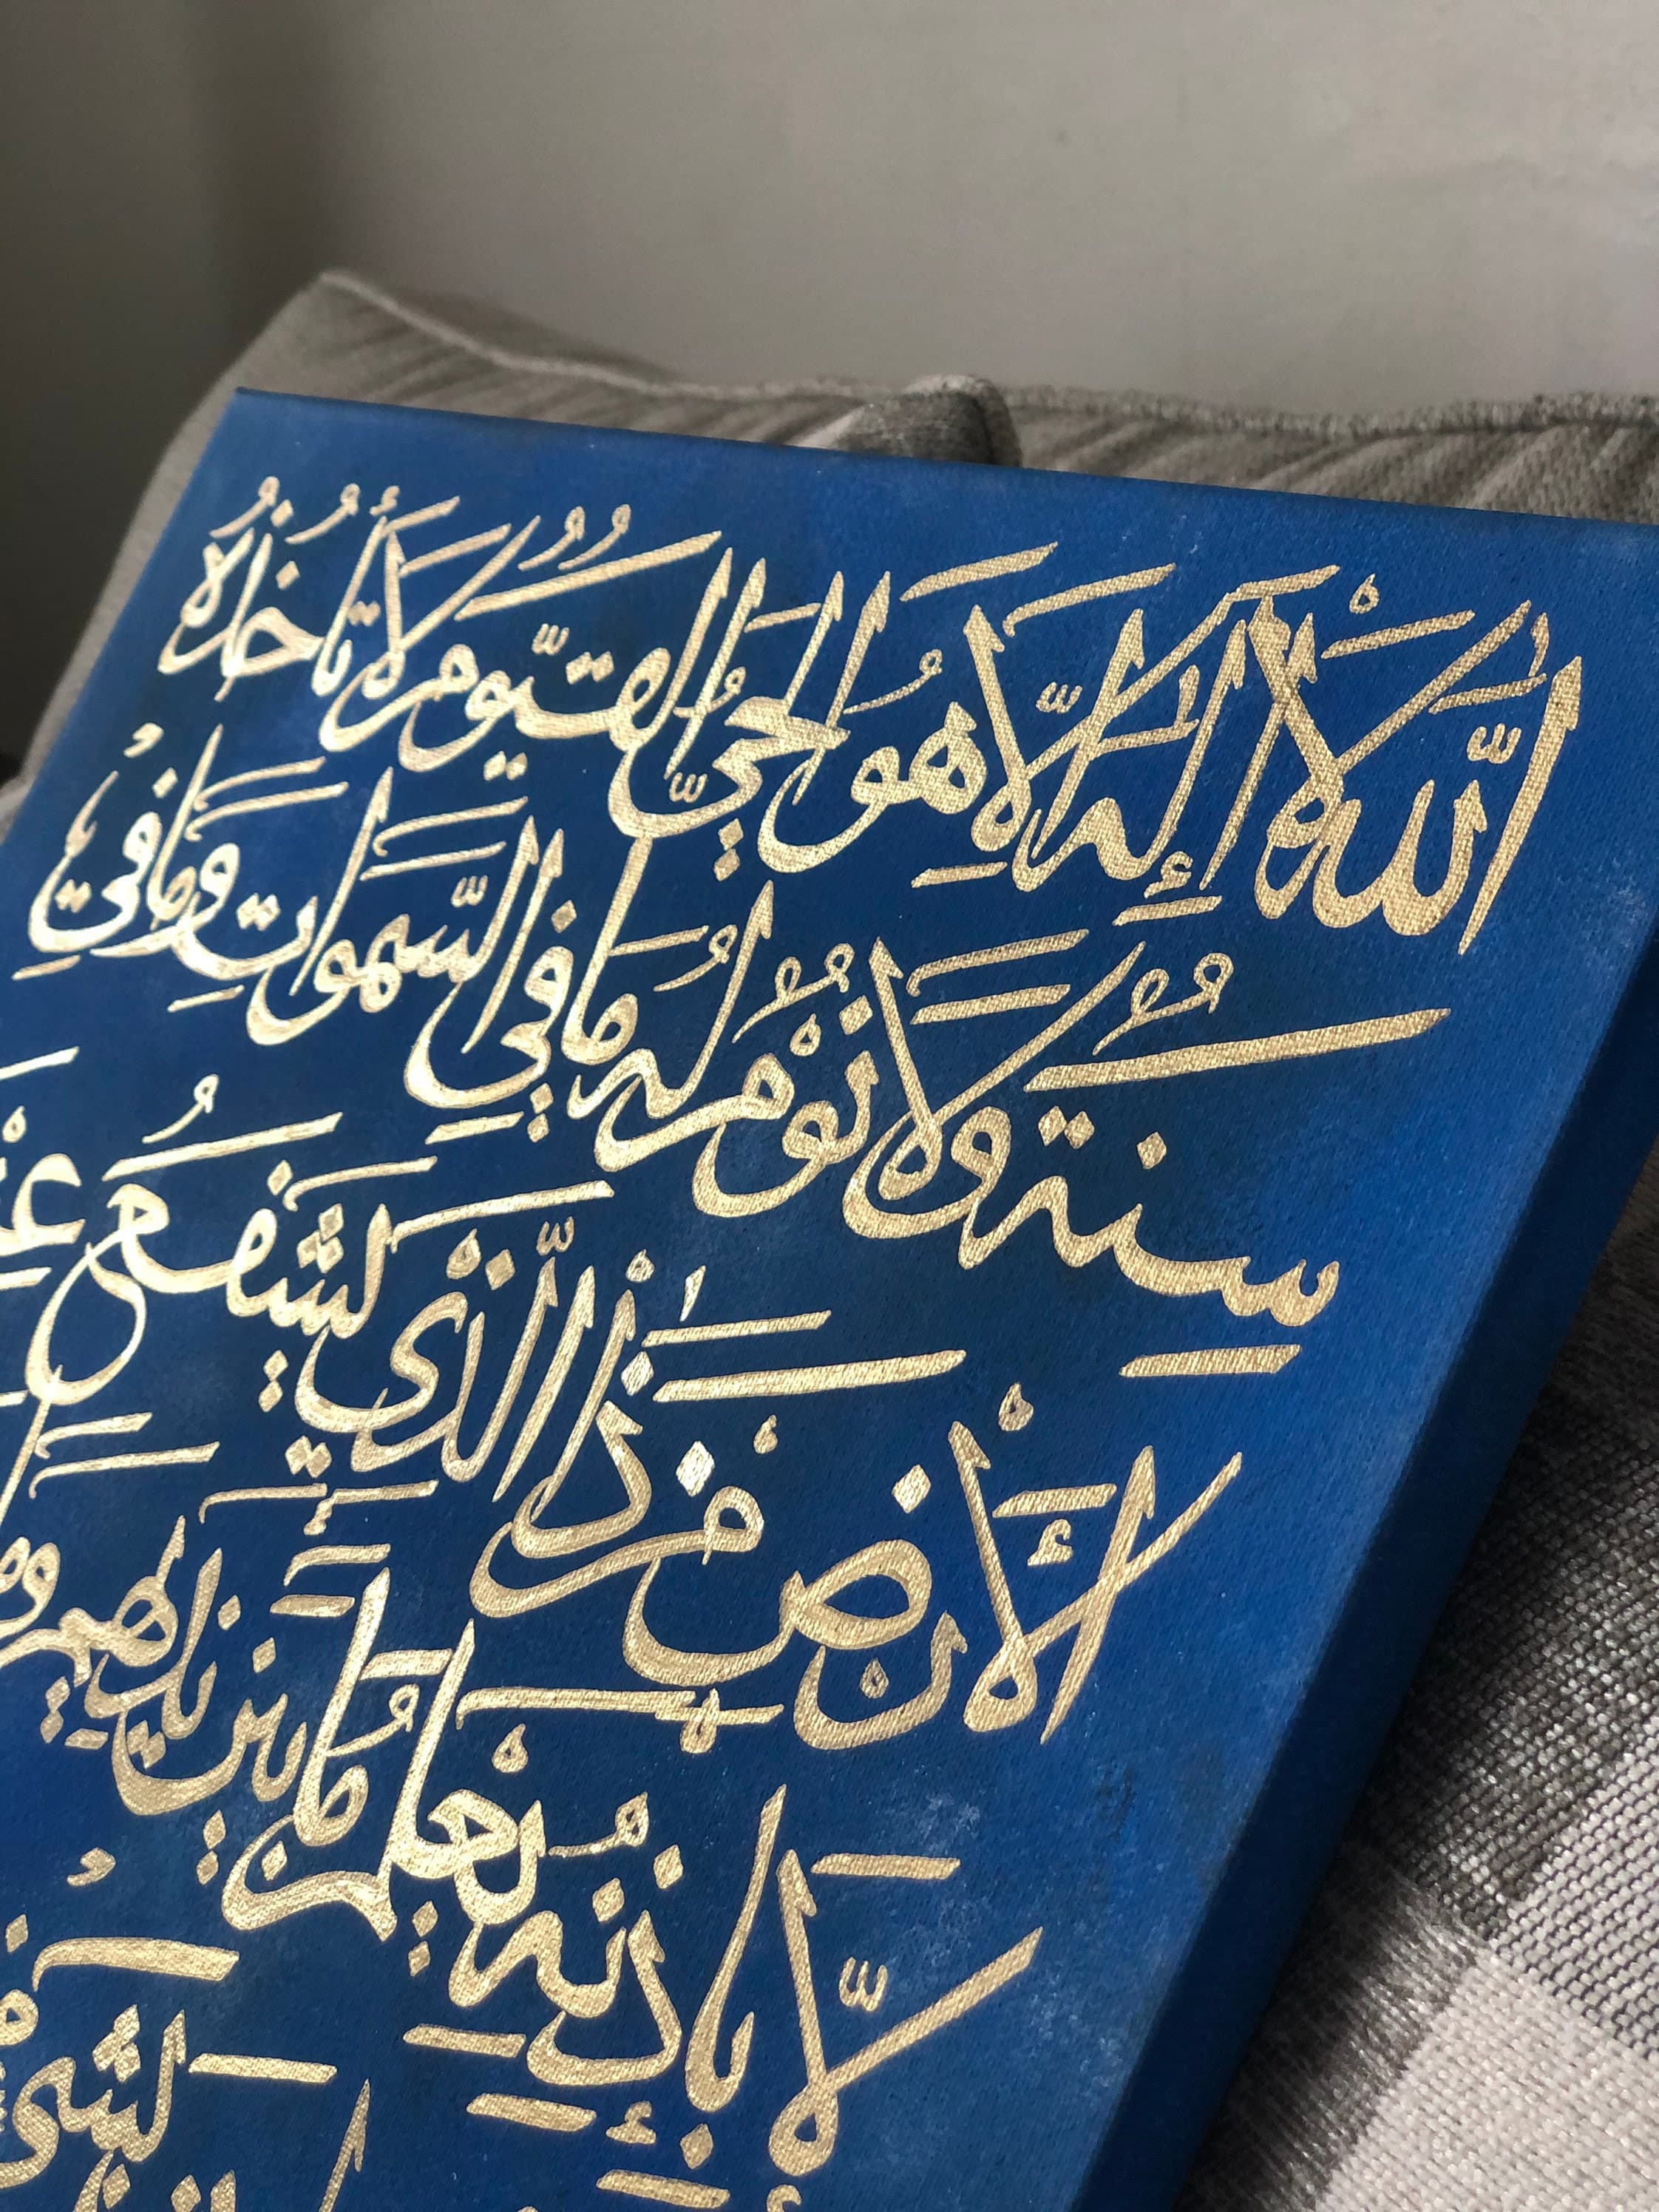 اَللّٰهُ لَآ إِلٰهَ إِلَّا هُوَ الْحَيُّ الْقَيُّومُ لَا تَأْخُذُهُ
سِنَةٌ وَلَا نَوْمٌ لَهُ مَا فِي السَّمٰوَاتِ وَمَا فِي
الْأَرْضِ مَنْ ذَا الَّذِي يَشْفَعُ
إِلَّا بِإِذْنِهِ يَعْلَمُ مَا بَيْنَ أَيْدِيهِمْ
بِشَيْءٍ